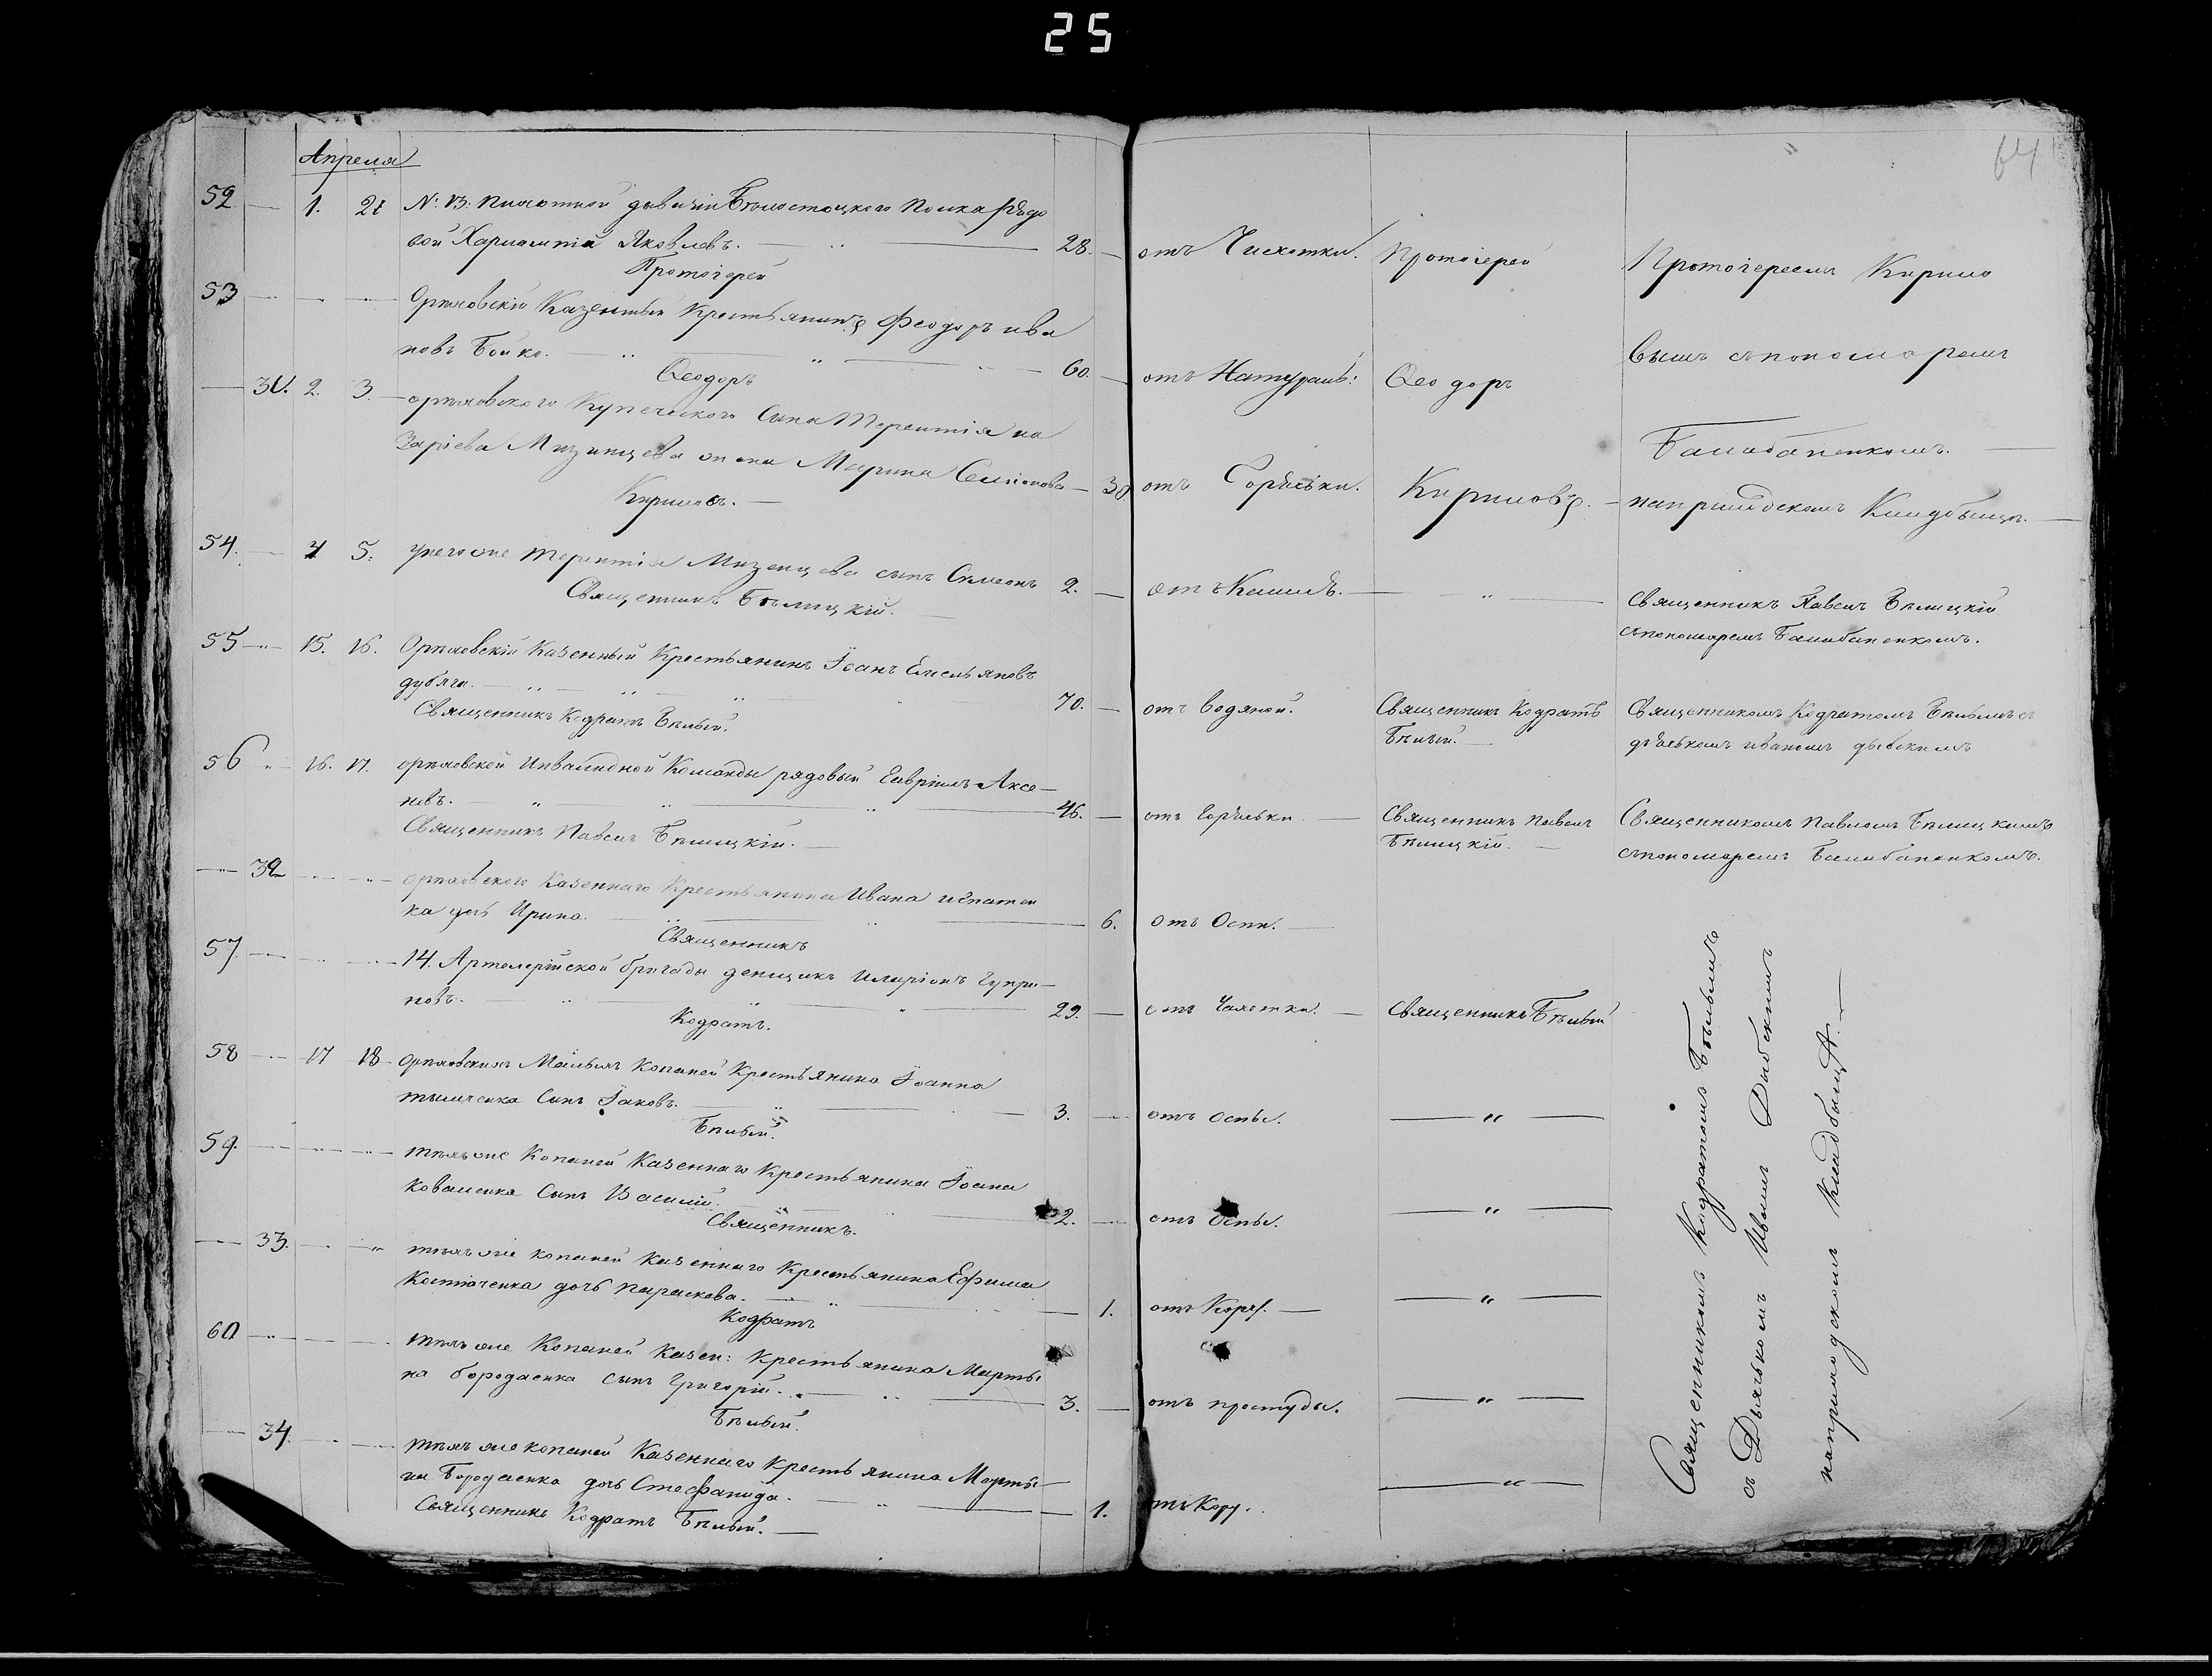 25
64
Апреля
52 1. 2. N: 13: Пихотной дивизіи Бѣлостоцкого Полка Рядо
вой Харлампій Яковлевъ. 28. отъ Чихотки. Протоіерей Протоіереемъ Кирило
Протоіерей
53 Орѣховскій Казенный Крестьянинъ Феодоръ ива
новъ Бойко. 60. отъ Натураль: Ѳеодоръ вымъ съпономаремъ
Ѳеодоръ
31. 2. 3. орѣховского Купеческого Сына Терентія на
Заріева Мизинцева жена Марина Семіонова 30 отъ Горячки. Кириловъ. Балабаненкомъ.
Кириловъ. наприходскомъ Кладбищѣ.
54. 4 5. унегоже Терентія Мизенцева сынъ Симеонъ 2. отъ Кашлѣ. Священникъ Павелъ Бѣлицкій
Священникъ Бѣлицкій. съпономаремъ Балабаненкомъ.
55 15. 16. Орѣховскій Казенный Крестьянинъ Іоанъ Емельяновъ
дубяга. 70. отъ водяной. Священникъ Кодратъ Священникомъ Кодратомъ Бѣлымъ с
Священникъ Кодратъ Бѣлый. Бѣлый. дьячкомъ иваномъ дыбскимъ
56 16. 17. орѣховской Инвалидной Команды рядовый Гавріилъ Аксе
невъ. 46. отъ Горячки Священникъ Павелъ Священникомъ Павломъ Бѣлицкимъ
Священникъ Павелъ Бѣлицкій. Бѣлицкій. съпономаремъ Балабаненкомъ.
32 орѣховского Казеннаго Крестьянина Ивана игнатен
ка дочь Ирина. 6. отъ Оспи.
Священникъ
57 14. Артелерійской бригады денщикъ Иларіонъ Чупри
новъ. 29. отъ Чахотки. Священникъ Бѣлый
Кодратъ.
58 17 18 орѣховскихъ Малыхъ Копаней Крестьянина Іоанна
сынъ Іаковъ. 3. отъ оспы. "
Бѣлый.
59. тѣхъ же Копаней Казеннаго Крестьянина Іоана
коваленка Сынъ Василій. 2. отъ Оспы. "
Священникъ.
33. тѣхъ же копаней Казеннаго Крестьянина Ефима
Костюченка дочь параскева. 1. отъ Кору. "
Кодратъ
60 тѣхъ же Копаней Казен: Крестьянина Марты
на бородаенка сынъ Григорій. 3. отъ простуды. "
Бѣлый.
34. тѣхъ же копаней Казеннаго Крестьянина Марты
на Бородаенка дочь Стефанида. 1. отъ Кору. "
Священникъ Кодратъ Бѣлый.
Священникомъ Кодратомъ Бѣлымъ
съ Дьячкомъ Иваномъ Дыбскимъ
наприходскомъ Кладбищѣ.